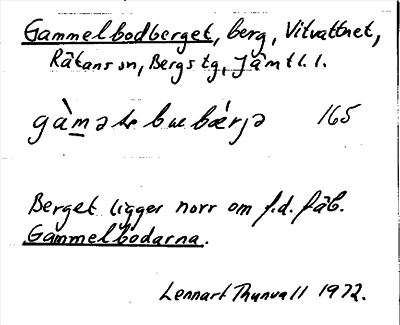 Gammelbodberget, berg, Vitvattnet,
Rätans sn, Bergs tg, Jämtl. l.
165
Berget ligger norr om f.d. fäb.
Gammelbodarna.
Lennart Thunvall 1972.